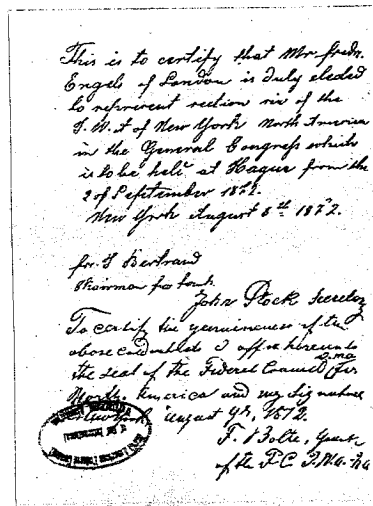 This is to certify that Mr. fredr.
Engels of London is duly elected
to represent section six of the
I. W. A of New York North America
in the General Congress which
is to be held at Hague from the
2 of September 1872.
New York August 8th 1872.
for. J Bertrand
Chairman pro tem
John Stock Secretary
To certify the genuineness of the
above credentials I affix hereunto
the seal of the Federal Council for
North America and my signature
New York August 9th, 1872.
F. Bolte, 
of the F.C. I.W.A.